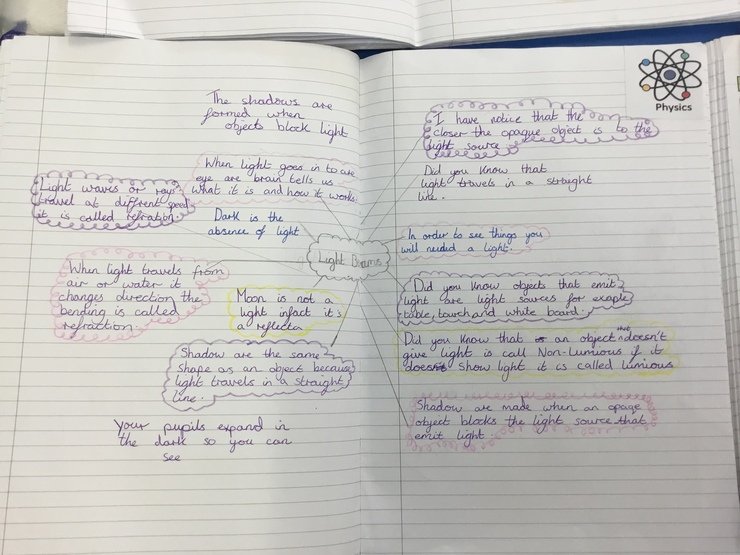 The shadows are
formed when
objects block light
When light goes in to are
eye are brain tells us
what it is and how it works.
Light waves or rays
travel at diffrent speed
it is called refration.
Dark is the
absence of light
Light Beams
When light travels from
air or water it
changes direction the
bending is called
refraction.
Moon is not a
light infact it's
a reflecta
Shadow are the same
shape as an object because
light travels in a straight
line.
Your pupils expand in
the dark so you can
see
Physics
I have notice that the
closer the opaque object is to the
light source
Did you know that
light travels in a straight
line.
In order to see things you
will needed a light.
Did you know objects that emit
light are light sources for exaple
table, touch and white board.
Did you know that an object that doesn't
give light is call Non-Lumious if it
does show light it is called lumious
Shadow are made when an opage
object blocks the light source that
emit light.